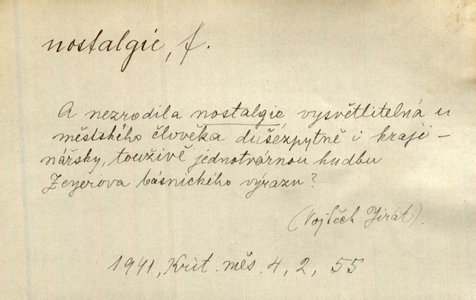 nostalgie, f.
A nezrodila nostalgie vysvětlitelná u
městského člověka dušezpytně i kraji-
nářsky, touživě jednotvárnou hudbu
Zeyerova básnického výrazu?
(Vojtěch Jirát).
1941, Krit. měs. 4, 2, 55